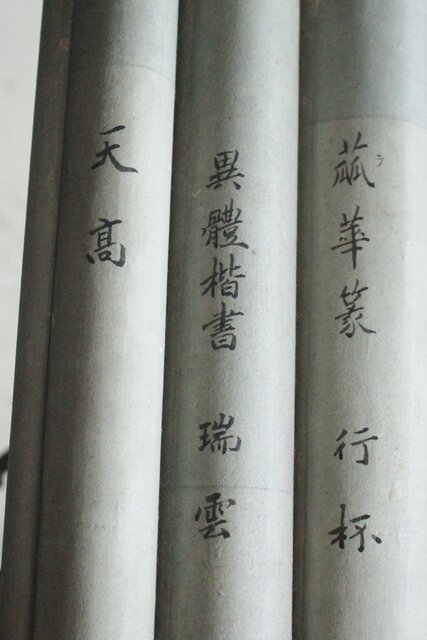 蓏ラ華篆 行杯
異體楷書 瑞雲
天髙